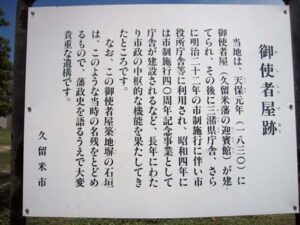 御使者屋跡
当地は、天保元年(一八三〇)に
御使者屋(久留米藩の迎賓館)が建
てられ、その後に三潴県庁舎、さら
に明治二十二年の市制施行に伴い市
役所庁舎等に利用され、昭和四年に
は市制施行四〇周年記念事業として
庁舎が建設されるなど、長年にわた
り市政の中枢的な機能を果たしてき
たところです。
なお、この御使者屋築地塀の石垣
は、このような当時の名残をとどめ
るもので、藩政史を語るうえで大変
貴重な遺構です。
久留米市